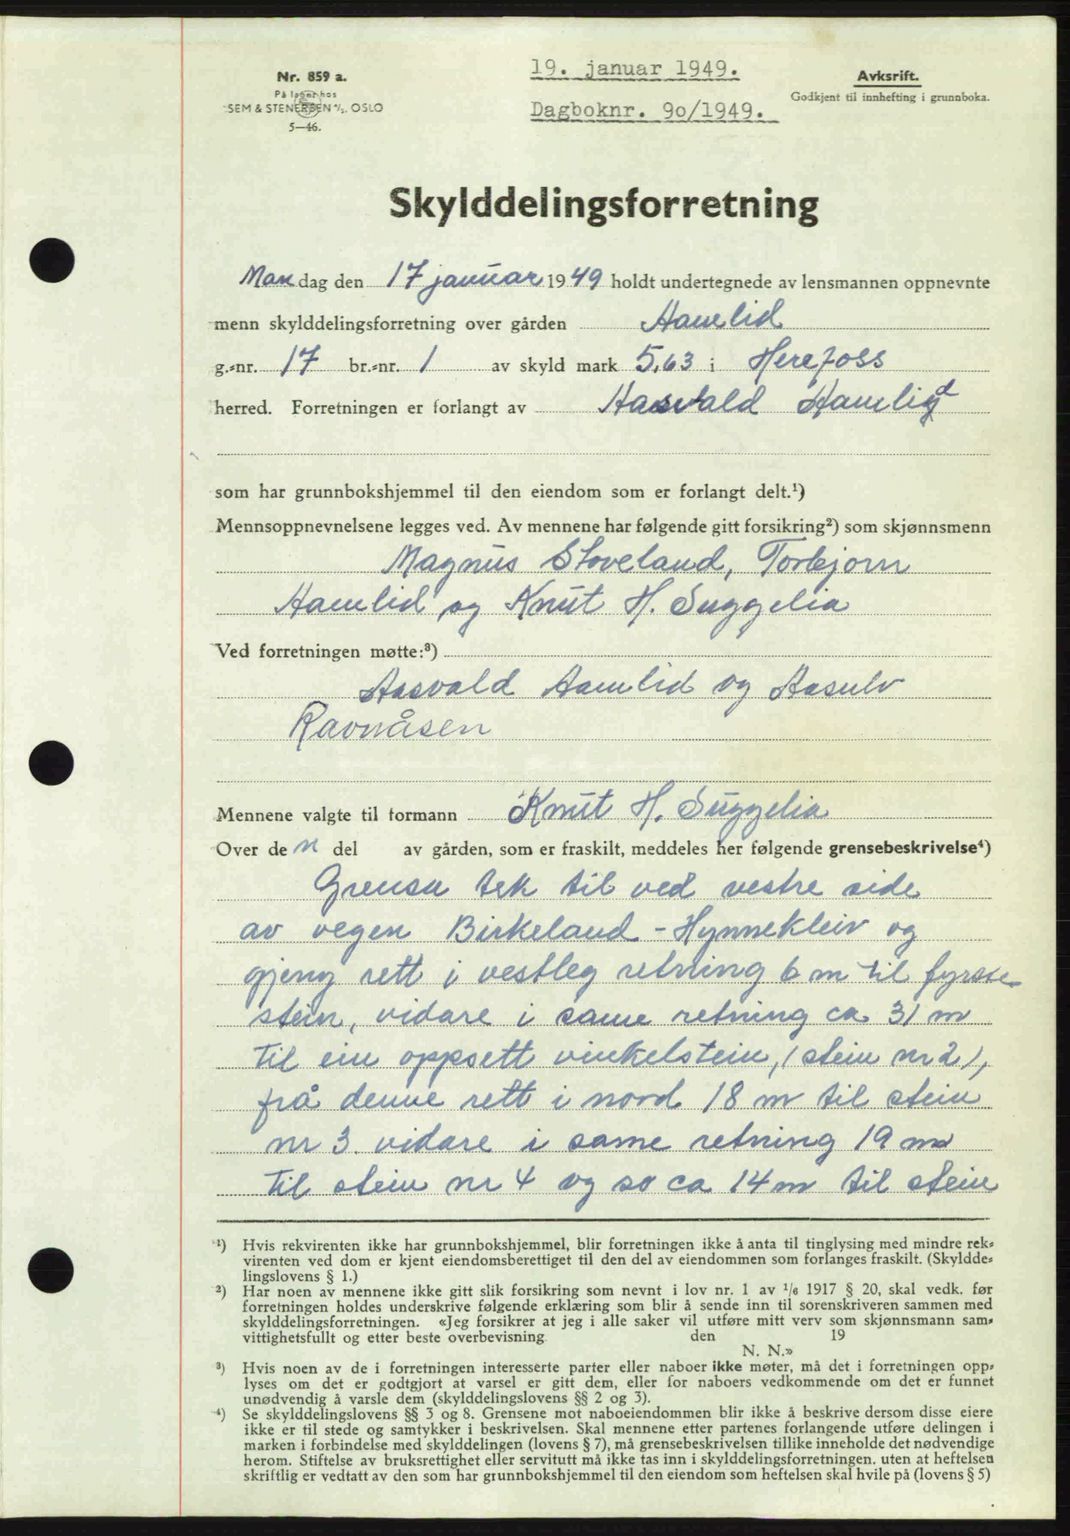 Nr. 859 a.
På lager hos
SEM & STENERSEN A/S, OSLO
5—46.
19. januar 1949.
Dagboknr. 90/1949.
Avksrift.
Godkjent til innhefting i grunnboka.
Skylddelingsforretning
Mandag den 17 januar 1949 holdt undertegnede av lensmannen oppnevnte
menn skylddelingsforretning over gården Aamlid
g.-nr. 17 br.-nr. 1 av skyld mark 5,63 i Herefoss
herred. Forretningen er forlangt av Aasvald Aamlid
som har grunnbokshjemmel til den eiendom som er forlangt delt.¹)
Mennsoppnevnelsene legges ved. Av mennene har følgende gitt forsikring²) som skjønnsmenn
Magnus Stoveland, Torbjørn
Aamlid og Knut H. Suggelia
Ved forretningen møtte:³)
Aasvald Aamlid og Aasulv
Ravnåsen
Mennene valgte til formann Knut H. Suggelia
Over den del av gården, som er fraskilt, meddeles her følgende grensebeskrivelse⁴)
Grensa tek til ved vestre side
av vegen Birkeland - Hynnekleiv og
gjeng rett i vestleg retning 6 m til fyrste
stein, vidare i same retning ca 31 m
til ein oppsett vinkelstein, (stein nr 2),
frå denne rett i nord 18 m til stein
nr 3. vidare i same retning 19 m
til stein nr 4 og so ca 14 m til stein
¹) Hvis rekvirenten ikke har grunnbokshjemmel, blir forretningen ikke å anta til tinglysing med mindre rek-
virenten ved dom er kjent eiendomsberettiget til den del av eiendommen som forlanges fraskilt. (Skyldde-
lingslovens § 1.)
²) Har noen av mennene ikke gitt slik forsikring som nevnt i lov nr. 1 av 1/6 1917 § 20, skal vedk. før
forretningen holdes underskrive følgende erklæring som blir å sende inn til sorenskriveren sammen med
skylddelingsforretningen. «Jeg forsikrer at jeg i alle saker vil utføre mitt verv som skjønnsmann sam-
vittighetsfullt og etter beste overbevisning den 19
N. N.»
³) Hvis noen av de i forretningen interesserte parter eller naboer ikke møter, må det i forretningen opp-
lyses om det er godtgjort at varsel er gitt dem, eller for naboers vedkommende om det er funnet
unødvendig å varsle dem (skylddelingslovens §§ 2 og 3).
⁴) Se skylddelingslovens §§ 3 og 8. Grensene mot naboeiendommen blir ikke å beskrive dersom disse eiere
ikke er til stede og samtykker i beskrivelsen. Skal mennene etter partenes forlangende utføre delingen i
marken i forbindelse med skylddelingen (lovens § 7), må grensebeskrivelsen tillike inneholde det nødvendige
herom. Stiftelse av bruksrettighet eller servitutt må ikke tas inn i skylddelingsforretningen. uten at heftelsen
skriftlig er vedtatt av den som har grunnbokshjemmel til den eiendom som heftelsen skal hvile på (lovens § 5)